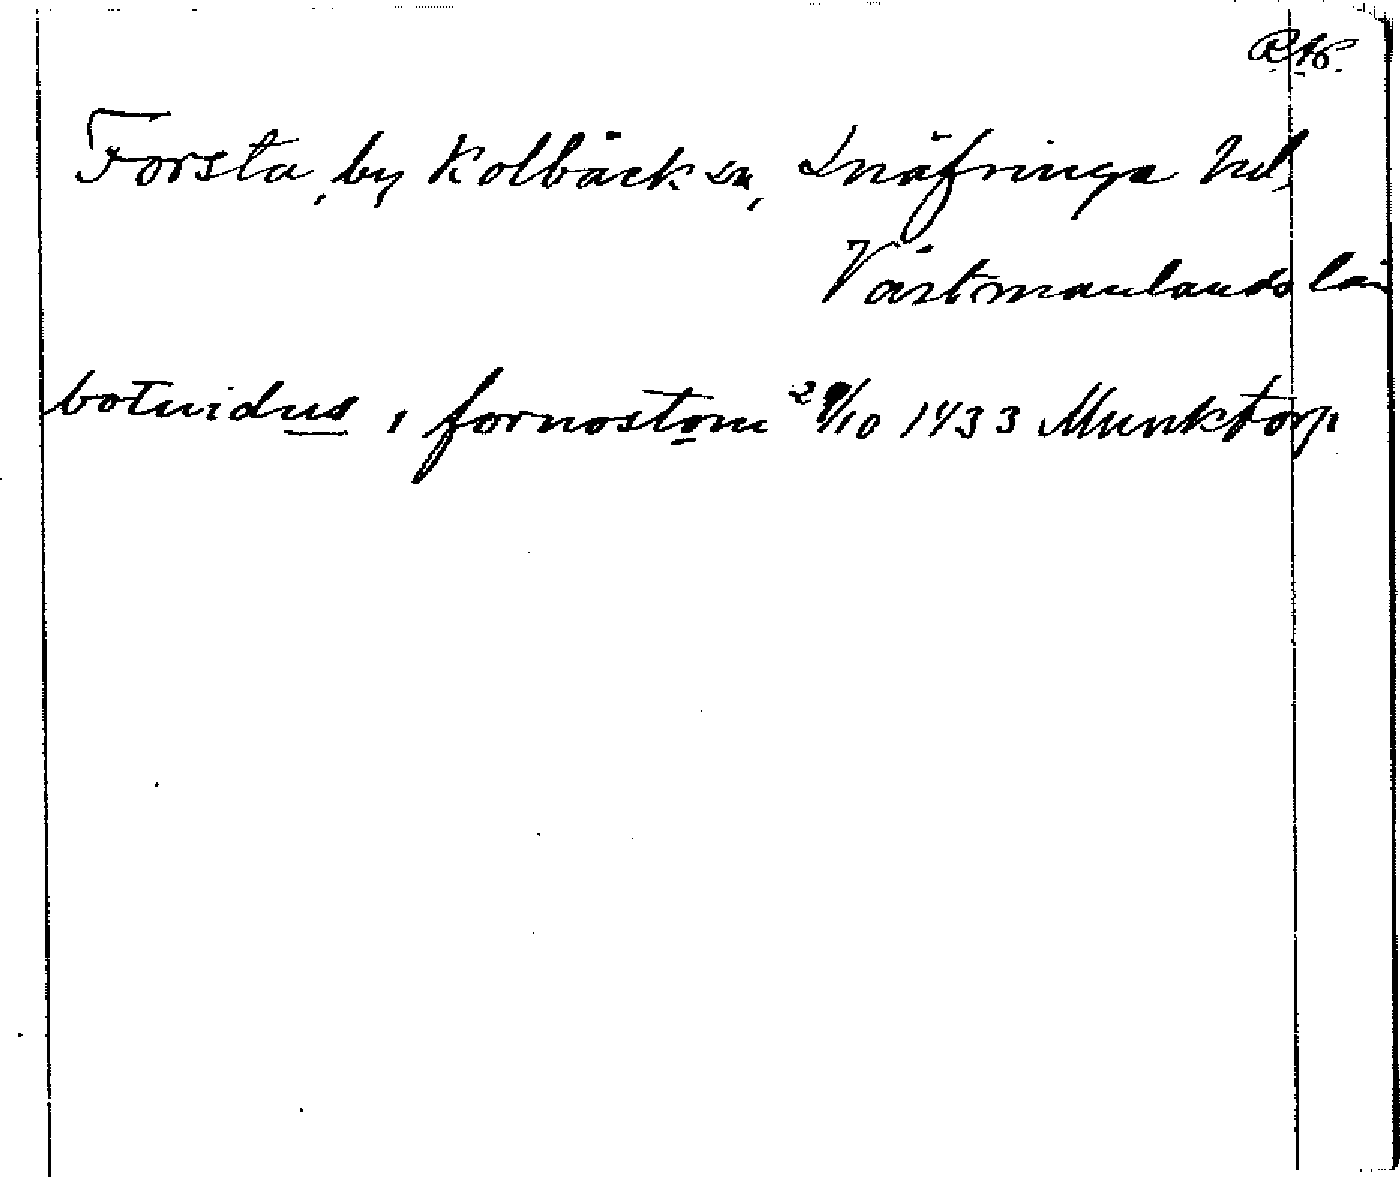 R.A.
Forsta, by Kolbäck sn, Snäfringe hd,
Västmanlands län
botuidus i fornostom 29/10 1433 Munktorp